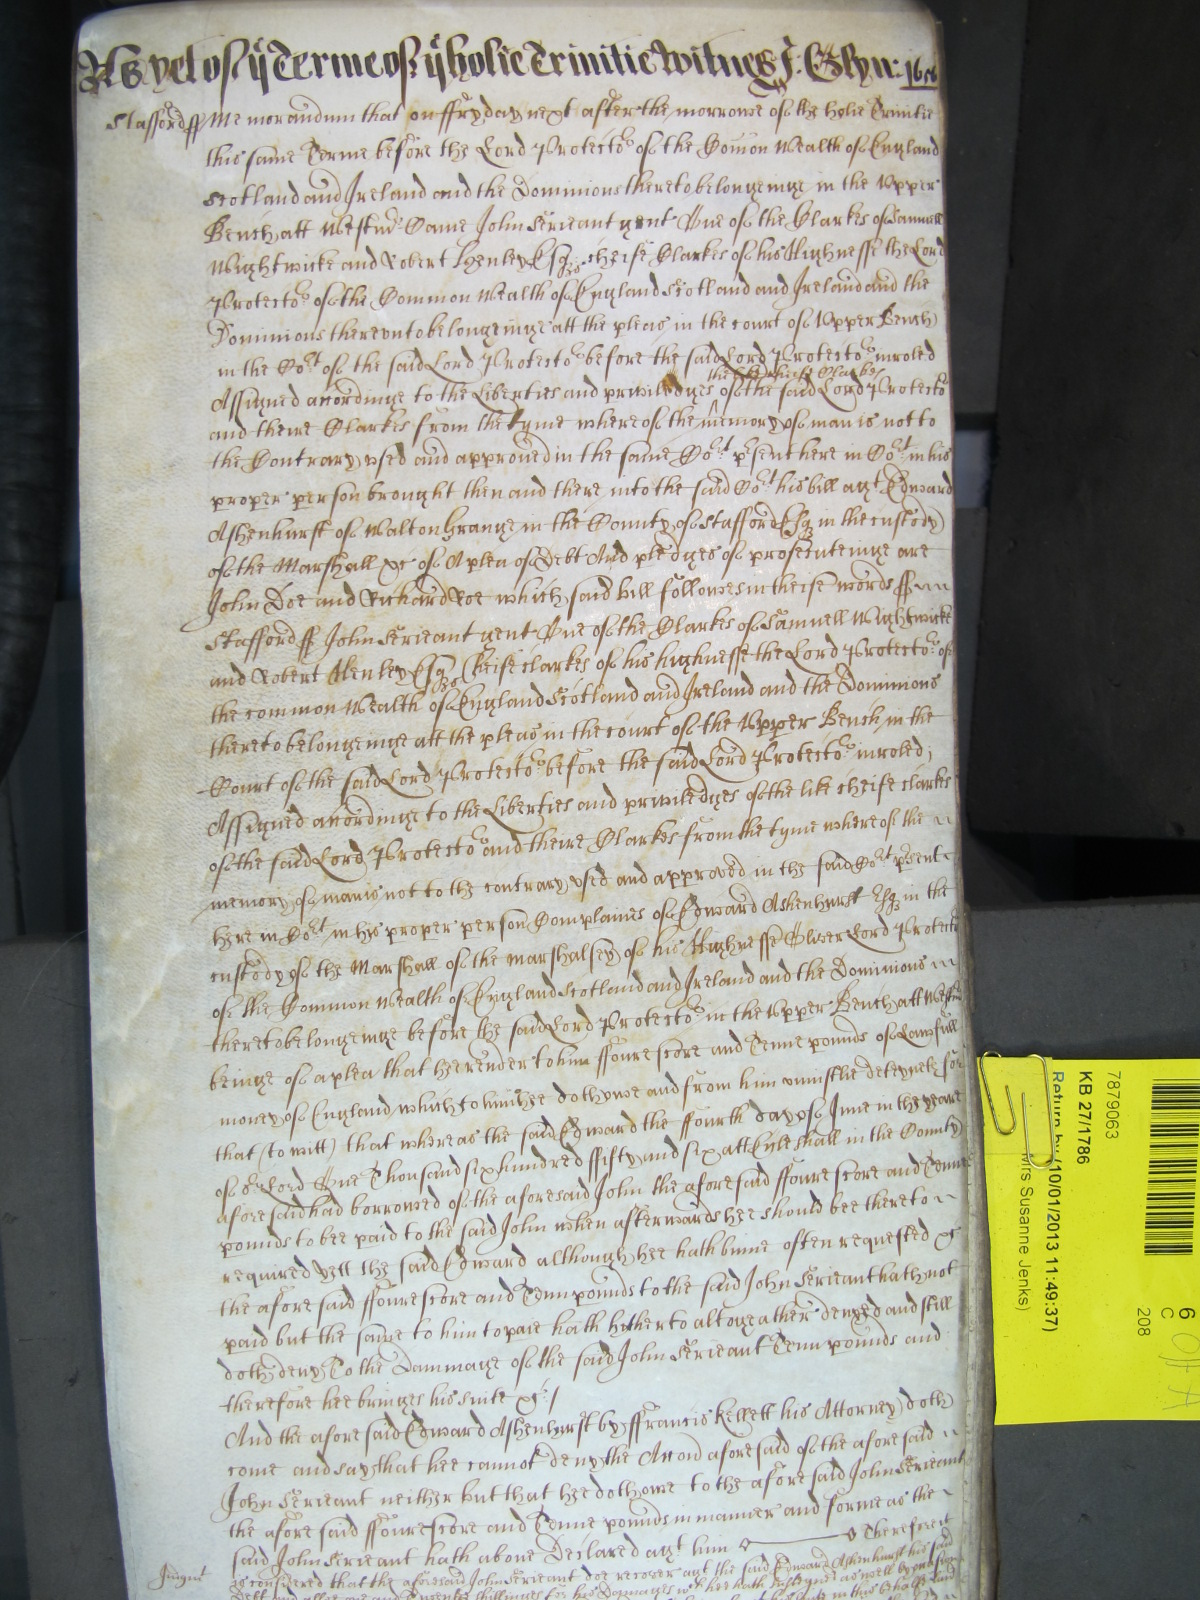 As yet of ye Terme of ye holie Trinitie Witnes J. Glyn: 1656
Stafford ss Memorandum that on ffryday next after the morrowe of the holie Trinitie
this same Terme before the Lord Protector of the Comon Wealth of England
Scotland and Ireland and the Dominions thereto belongeinge in the Upper
Bench att Westmr Came John Serieant gent One of the Clarkes of Samuell
Wightwicke and Robert Henley Esqrs cheife Clarkes of his Highnesse the Lord
Protector of the Common Wealth of England Scotland and Ireland and the
Dominions thereunto belongeinge att the pleas in the court of Upper Bench
in the Cort of the said Lord Protector before the said Lord Protector inroled
the like cheife Clarkes
Assigned accordinge to the Liberties and priviledges of the said Lord Protector
and theire Clarkes from the tyme whereof the memory of man is not to
the Contrary used and approued in the same Cort prsent here in Cort in his
proper person brought then and there into the said Cort his bill agt Edward
Ashenhurst of Walton Grange in the County of Stafford Esqr in the custody
of the Marshall &c of A plea of Debt And pledges of prosecuteinge are
John Doe and Richard Roe which said bill followes in theise words ss
Stafford ss John Serieant gent One of the Clarkes of Samuell Wightwicke
and Robert Henley Esqrs Cheife clarkes of his highnesse the Lord Protector of
the common Wealth of England Scotland and Ireland and the Dominions
thereto belongeinge att the pleas in the court of the Upper Bench in the
Court of the said Lord Protector before the said Lord Protector inroled;
Assigned accordinge to the Liberties and priviledges of the like cheife clarkes
of the said Lord Protector and theire Clarkes from the tyme whereof the
memory of man is not to the contrary used and approved in the said Cort prsent
here in Cort in his proper person Complaines of Edward Ashenhurst Esqr in the
custody of the Marshall of the marshalsey of his Highnesse Oliver Lord Protector
of the Common Wealth of England Scotland and Ireland and the Dominions
thereto belongeinge before the said Lord Protector in the Upper Bench att Westmr
beinge of a plea that hee render to him ffourescore and Tenne pounds of Lawfull
money of England which to him hee doth owe and from him uniustlie deteyneth for
that (to witt) that whereas the said Edward the ffourth day of June in the yeare
of our Lord One Thousand six hundred ffifty and six att Eccleshall in the County
aforesaid had borrowed of the aforesaid John the aforesaid ffourescore and Tenne
pounds to bee paid to the said John when afterwards hee should bee thereto
required yett the said Edward although hee hath binne often requested &c
the aforesaid ffourescore and Tenn pounds to the said John Serieant hath not
paid but the same to him to paie hath hitherto altogeather denyed and still
doth deny To the Dammage of the said John Serieant Tenn pounds and
therefore hee bringes his suite &c /
And the aforesaid Edward Ashenhurst by ffrancis Kessett his Attorney doth
come and say that hee cannot deny the Accon aforesaid of the aforesaid
John Serieant neither but that hee doth owe to the aforesaid John Serieant
the aforesaid ffourescore and Tenne pounds in manner and forme as the
said John Serieant hath above Declared agt him Therefore it
Judgmt
is considered that the aforesaid John Serieant doe recover agt the said Edward Ashenhurst his said
7879063
KB 27/1786
Return by (10/01/2013 11:49:37)
Mrs Susanne Jenks)
6
C
208